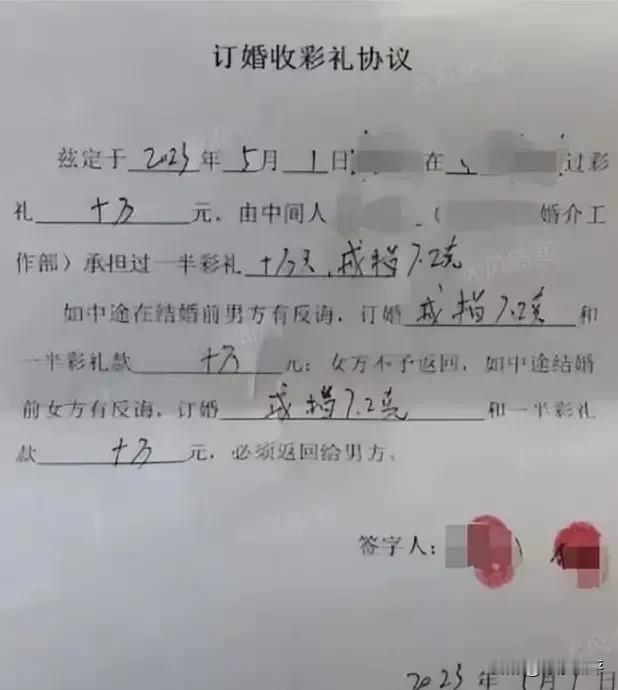 订婚收彩礼协议
兹定于 2023 年 5 月 1 日 在 过彩
礼 十万 元，由中间人 （ 婚介工
作部）承担过一半彩礼 十万元，戒指7.2克
如中途在结婚前男方有反诲，订婚 戒指7.2克 和
一半彩礼款 十万 元；女方不予返回，如中途结婚
前女方有反诲，订婚 戒指7.2克 和一半彩礼
款 十万 元，必须返回给男方、
签字人：
2023 年 5月1日